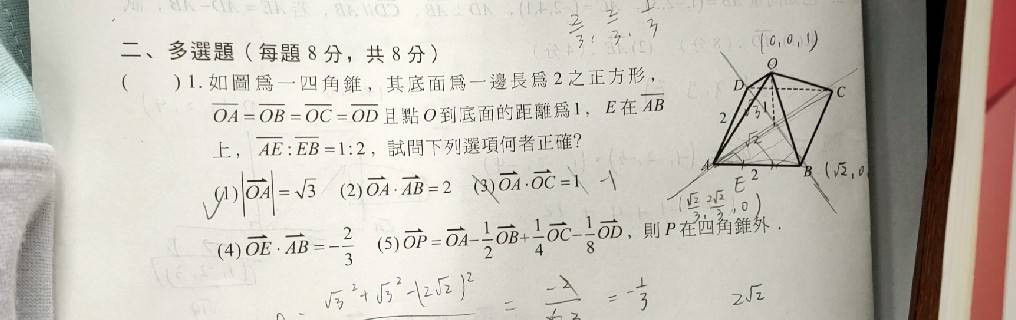 2/3, 2/3, 1/3
二、多選題（每題 8 分，共 8 分）
(0,0,1)
(　　) 1. 如圖爲一四角錐，其底面爲一邊長爲 2 之正方形，
$\overline{OA}=\overline{OB}=\overline{OC}=\overline{OD}$ 且點 O 到底面的距離爲 1，E 在 $\overline{AB}$
上，$\overline{AE}:\overline{EB}=1:2$，試問下列選項何者正確?
(1) $|\overrightarrow{OA}|=\sqrt{3}$ (2) $\overrightarrow{OA}\cdot\overrightarrow{AB}=2$ (3) $\overrightarrow{OA}\cdot\overrightarrow{OC}=1$ -1
(4) $\overrightarrow{OE}\cdot\overrightarrow{AB}=-\frac{2}{3}$ (5) $\overrightarrow{OP}=\overrightarrow{OA}-\frac{1}{2}\overrightarrow{OB}+\frac{1}{4}\overrightarrow{OC}-\frac{1}{8}\overrightarrow{OD}$，則 P 在四角錐外．
O
D C
2 √3 1
√2
A 2 B (√2, 0
E
(√2/3, 2√2/3, 0)
√3² + √3² - (2√2)² = -2 = -1/3 2√2